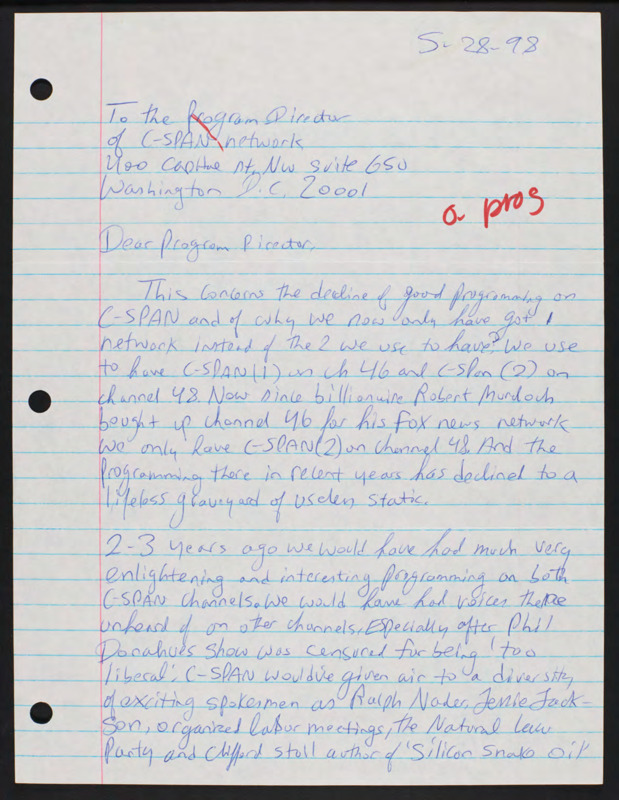 5-28-98
To the Program Director
of C-SPAN network
400 Capitue st, NW suite 650
Washington D.C. 20001
a prog
Dear Program Director,
This concerns the decline of good programming on
C-SPAN and of why we now only have got 1
network instead of the 2 we use to have? We use
to have C-SPAN(1) on ch 46 and C-Span (2) on
channel 48. Now since billionaire Robert Murdoch
bought up channel 46 for his Fox news network
we only have C-SPAN(2) on channel 48. And the
programming there in recent years has declined to a
lifeless graveyard of useless static.
2-3 years ago we would have had much very
enlightening and interesting programming on both
C-SPAN channels. We would have had voices there
unheard of on other channels, Especially after Phil
Donahues show was censured for being 'too
liberal'. C-SPAN wouldve given air to a diversity
of exciting spokesmen as Ralph Nader, Jessie Jack-
son, organized labor meetings, the Natural Law
Party and Clifford Stoll author of 'Silicon Snake Oil'